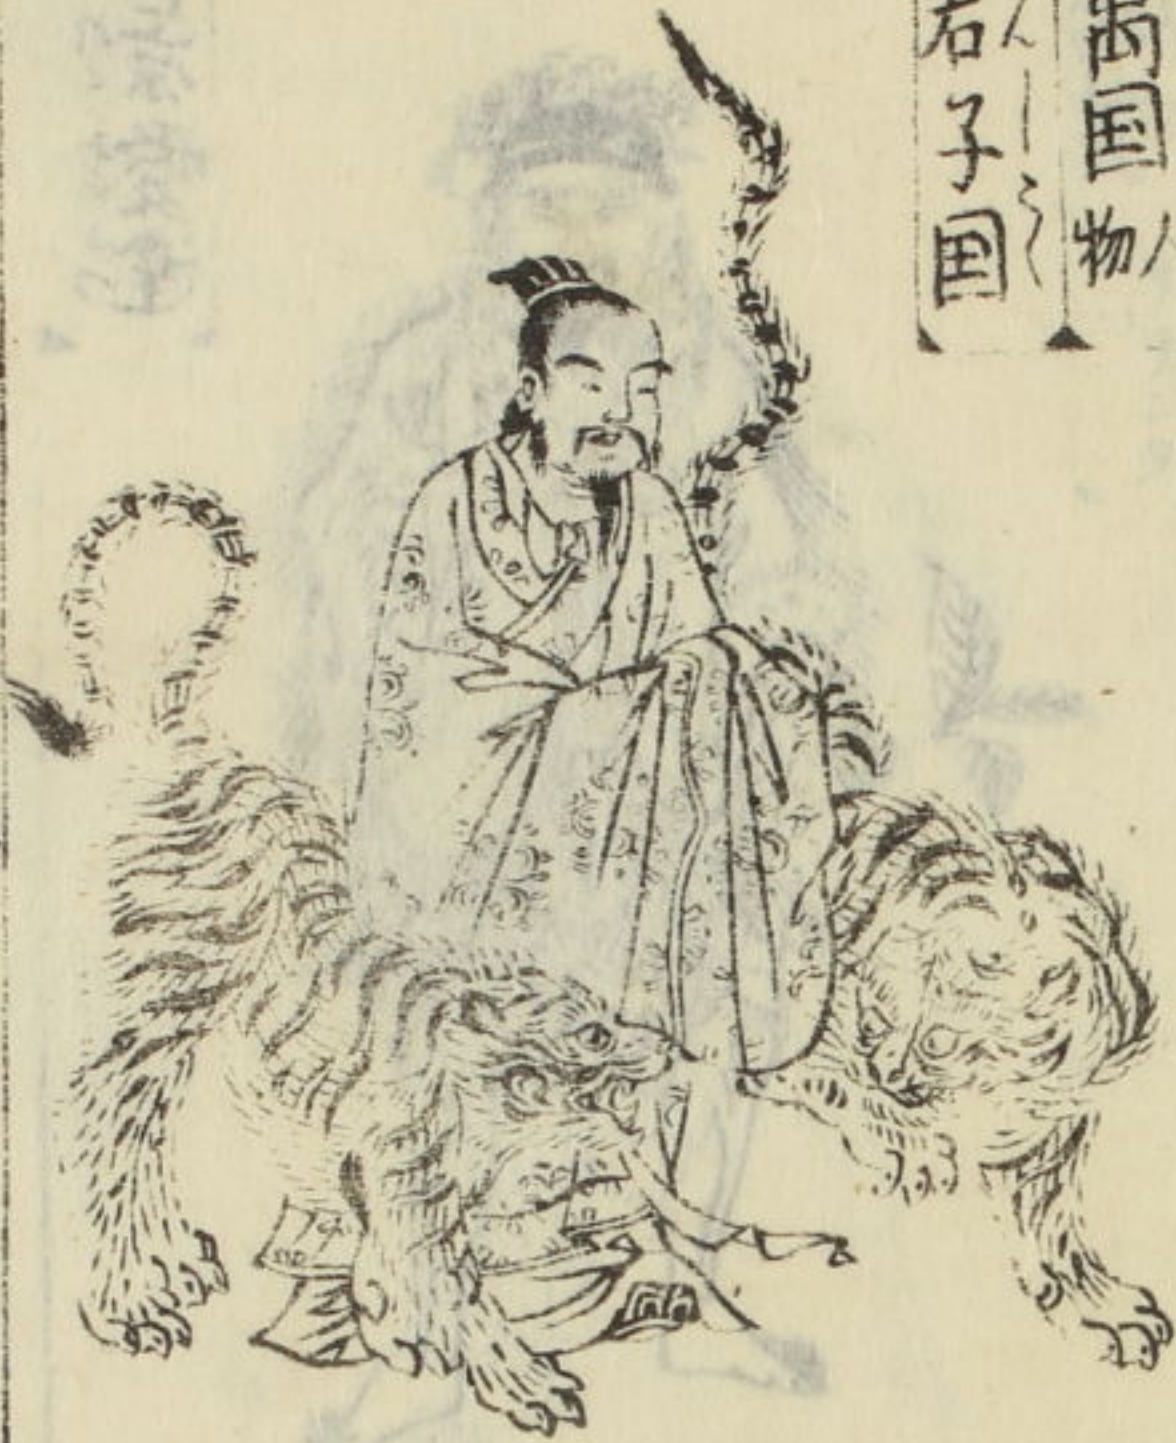 萬国物ノ
んしこく
君子国